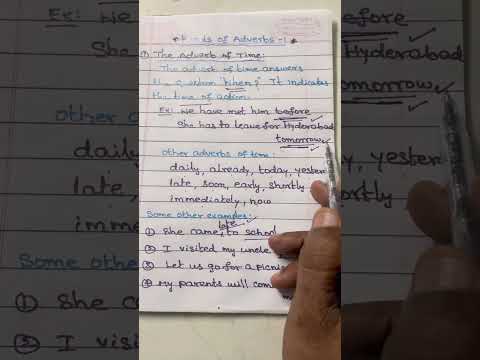 * Kinds of Adverbs -1 *
① The Adverb of Time:
The adverb of time answers
the question "When?" It indicates
the time of action.
Ex: We have met him before
She has to leave for Hyderabad
tomorrow.
Other adverbs of time:
daily, already, today, yester
late, soon, early, shortly
immediately, now
Some other examples:
① She came late to school
② I visited my uncle
③ Let us go for a picnic
④ My parents will com